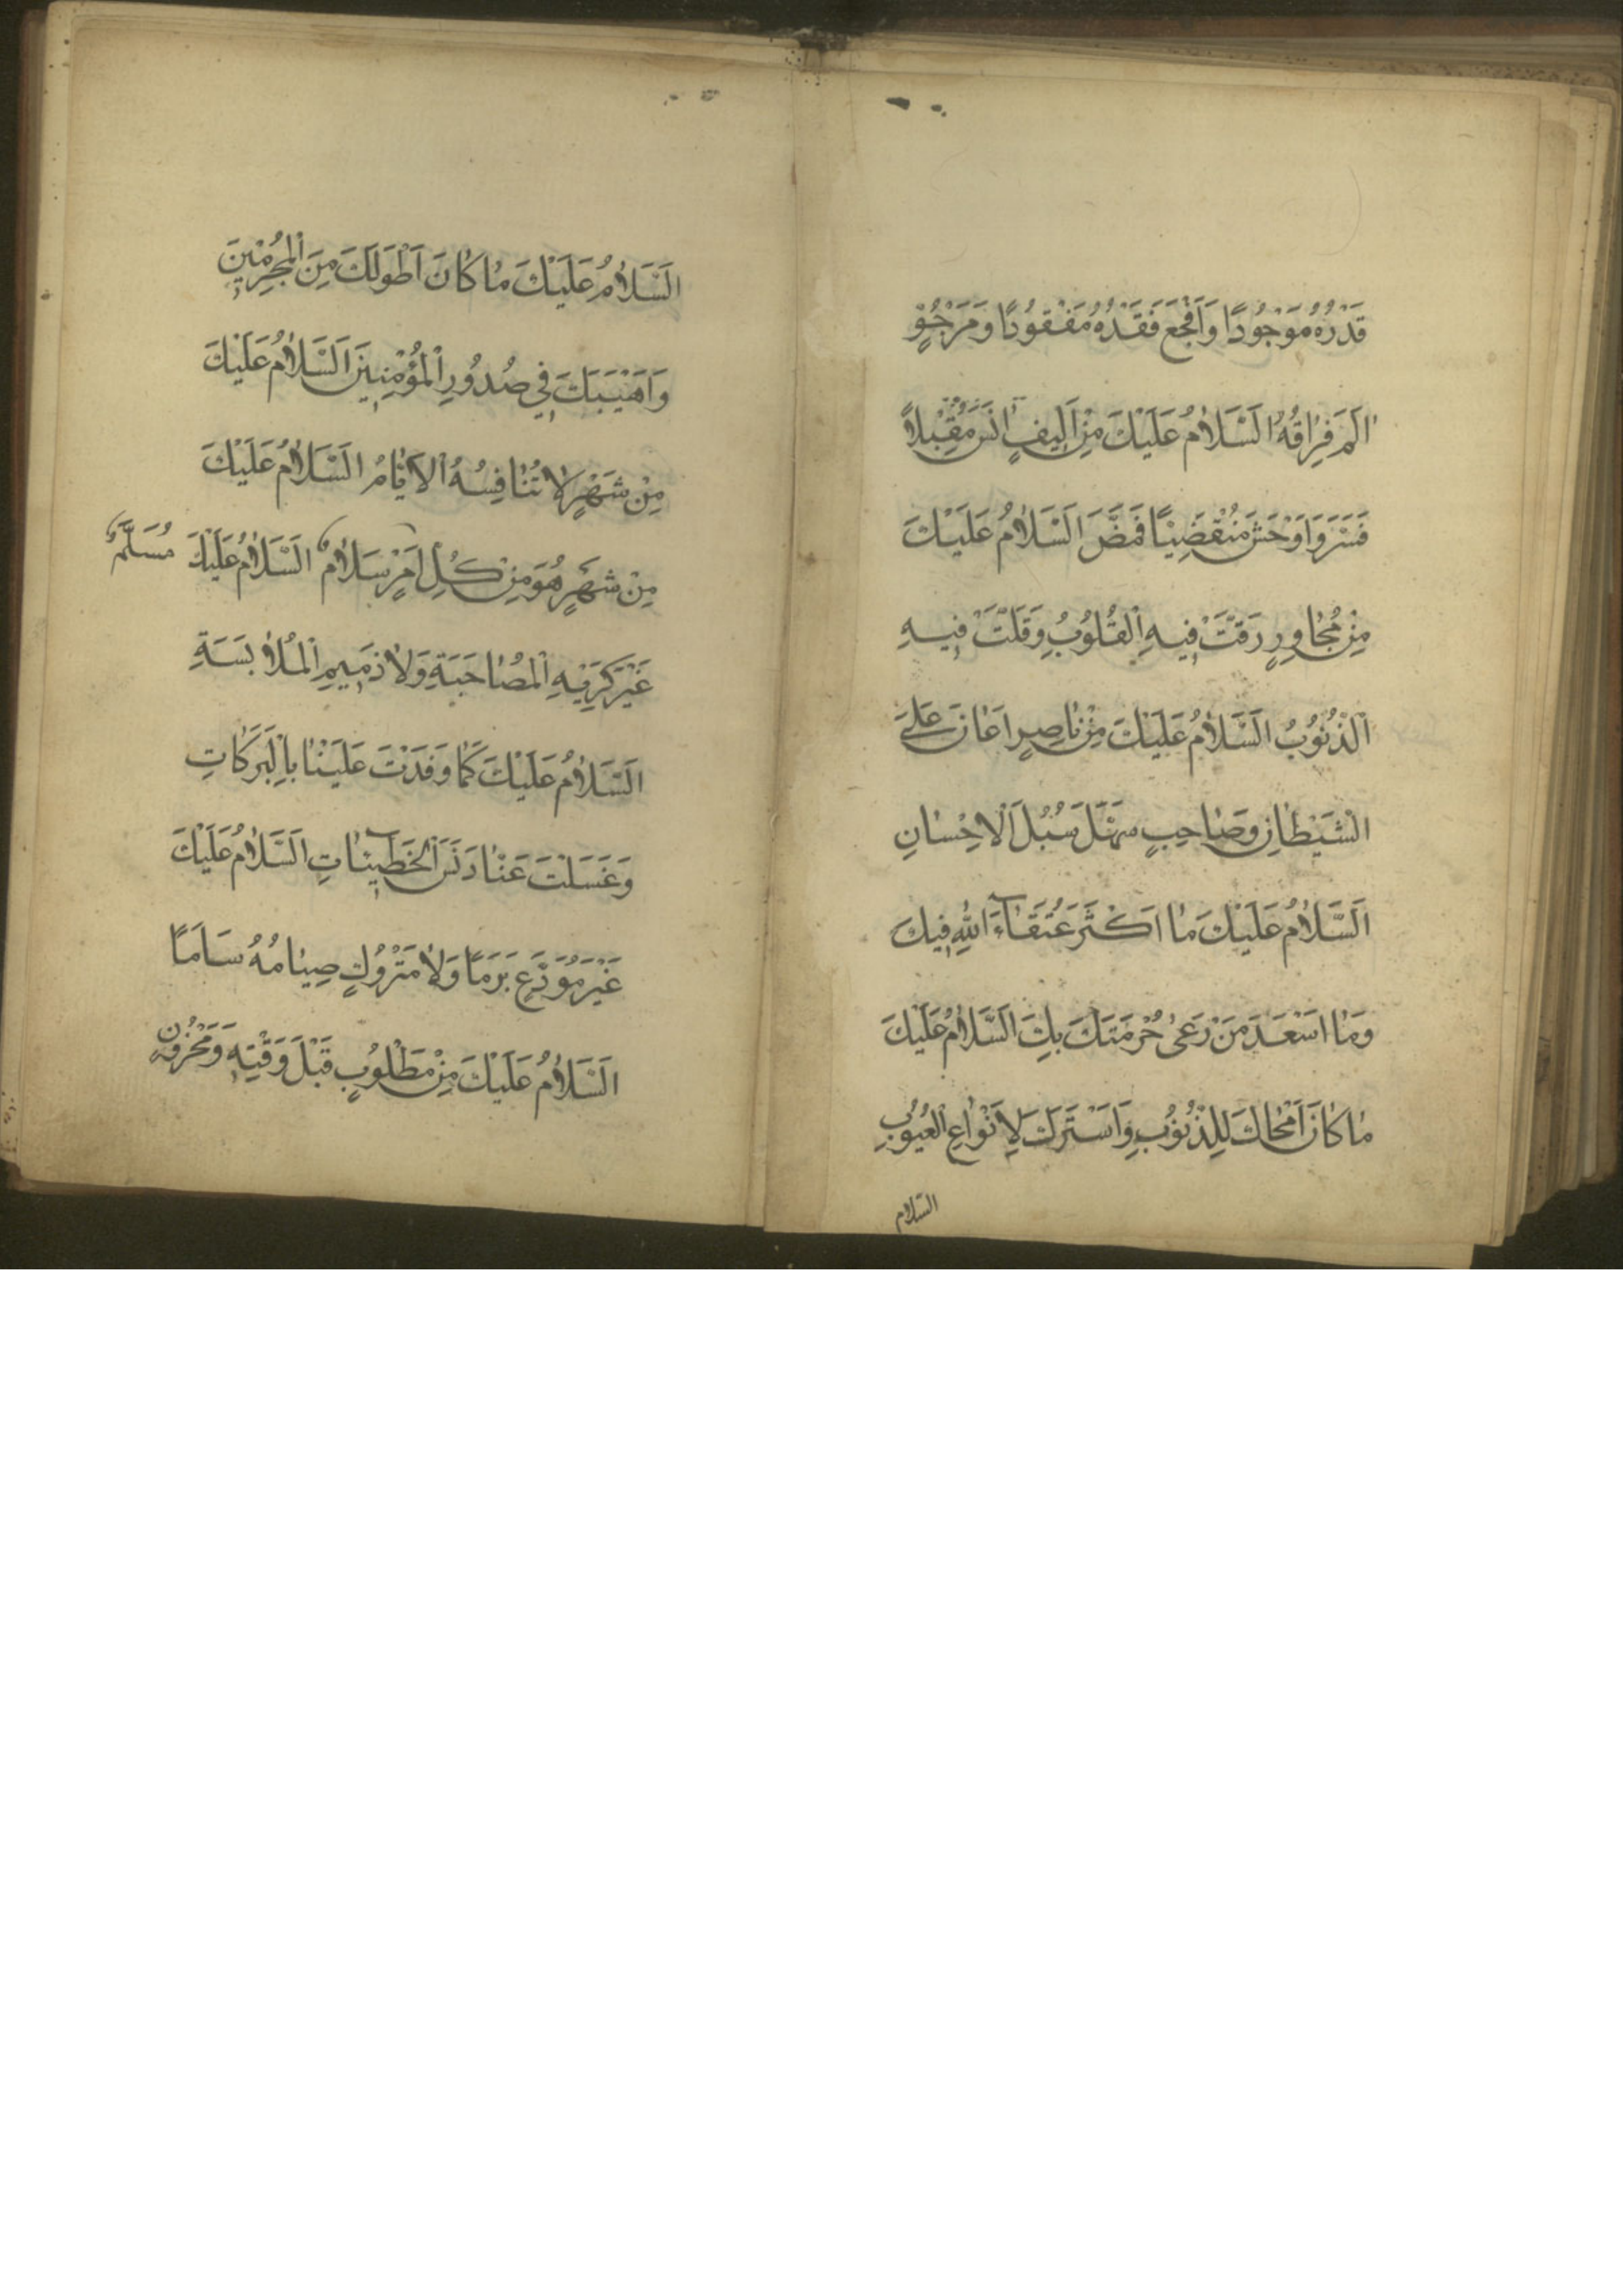 قَدْرُهُ مَوْجُودًا وَاَفْجَعَ فَقْدُهُ مَفْقُودًا وَمَرْجُوٍّ
اٰلَمَ فِرٰاقُهُ اَلسَّلاٰمُ عَلَيْكَ مِنْ اَلِيفٍ اٰنَسَ مُقْبِلاً
فَسَرَّ وَاَوْحَشَ مُنْقَضِيًا فَمَضَّ اَلسَّلاٰمُ عَلَيْكَ
مِنْ مُجٰاوِرٍ رَقَّتْ فِيهِ الْقُلُوبُ وَقَلَّتْ فِيهِ
الذُّنُوبُ اَلسَّلاٰمُ عَلَيْكَ مِنْ نٰاصِرٍ اَعٰانَ عَلَى
الشَّيْطٰانِ وَصٰاحِبٍ سَهَّلَ سُبُلَ الْاِحْسٰانِ
اَلسَّلاٰمُ عَلَيْكَ مٰا اَكْثَرَ عُتَقٰآءَ اللّٰهِ فِيكَ
وَمٰا اَسْعَدَ مَنْ رَعىٰ حُرْمَتَكَ بِكَ اَلسَّلاٰمُ عَلَيْكَ
مٰا كٰانَ اَمْحٰاكَ لِلذُّنُوبِ وَاَسْتَرَكَ لِاَنْوٰاعِ الْعُيُوبِ
السّلام
اَلسَّلاٰمُ عَلَيْكَ مٰا كٰانَ اَطْوَلَكَ مِنَ الْمُجْرِمِينَ
وَاَهْيَبَكَ فِي صُدُورِ الْمُؤْمِنِينَ اَلسَّلاٰمُ عَلَيْكَ
مِنْ شَهْرٍ لاٰ تُنٰافِسُهُ الْاَيّٰامُ اَلسَّلاٰمُ عَلَيْكَ
مِنْ شَهْرٍ هُوَ مِنْ كُلِّ اَمْرٍ سَلاٰمٌ اَلسَّلاٰمُ عَلَيْكَ
غَيْرَ كَرِيهِ الْمُصٰاحَبَةِ وَلاٰ ذَمِيمِ الْمُلاٰبَسَةِ
اَلسَّلاٰمُ عَلَيْكَ كَمٰا وَفَدْتَ عَلَيْنٰا بِالْبَرَكٰاتِ
وَغَسَلْتَ عَنّٰا دَنَسَ الْخَطِيۤئٰاتِ اَلسَّلاٰمُ عَلَيْكَ
غَيْرَ مُوَدَّعٍ بَرَمًا وَلاٰ مَتْرُوكٍ صِيٰامُهُ سَاَمًا
اَلسَّلاٰمُ عَلَيْكَ مِنْ مَطْلُوبٍ قَبْلَ وَقْتِهِ وَمَحْزُونٍ